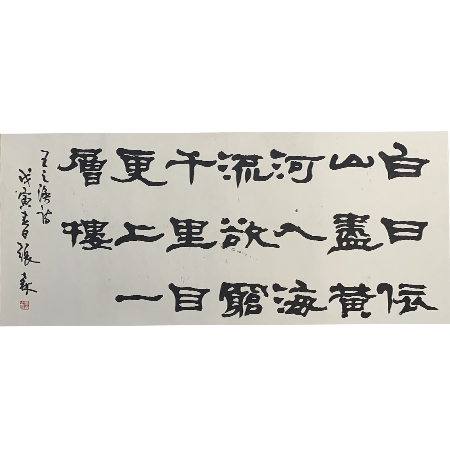 白日依
山盡黃
河入海
流欲窮
千里目
更上一
層樓
王之渙詩
戊寅春日張森